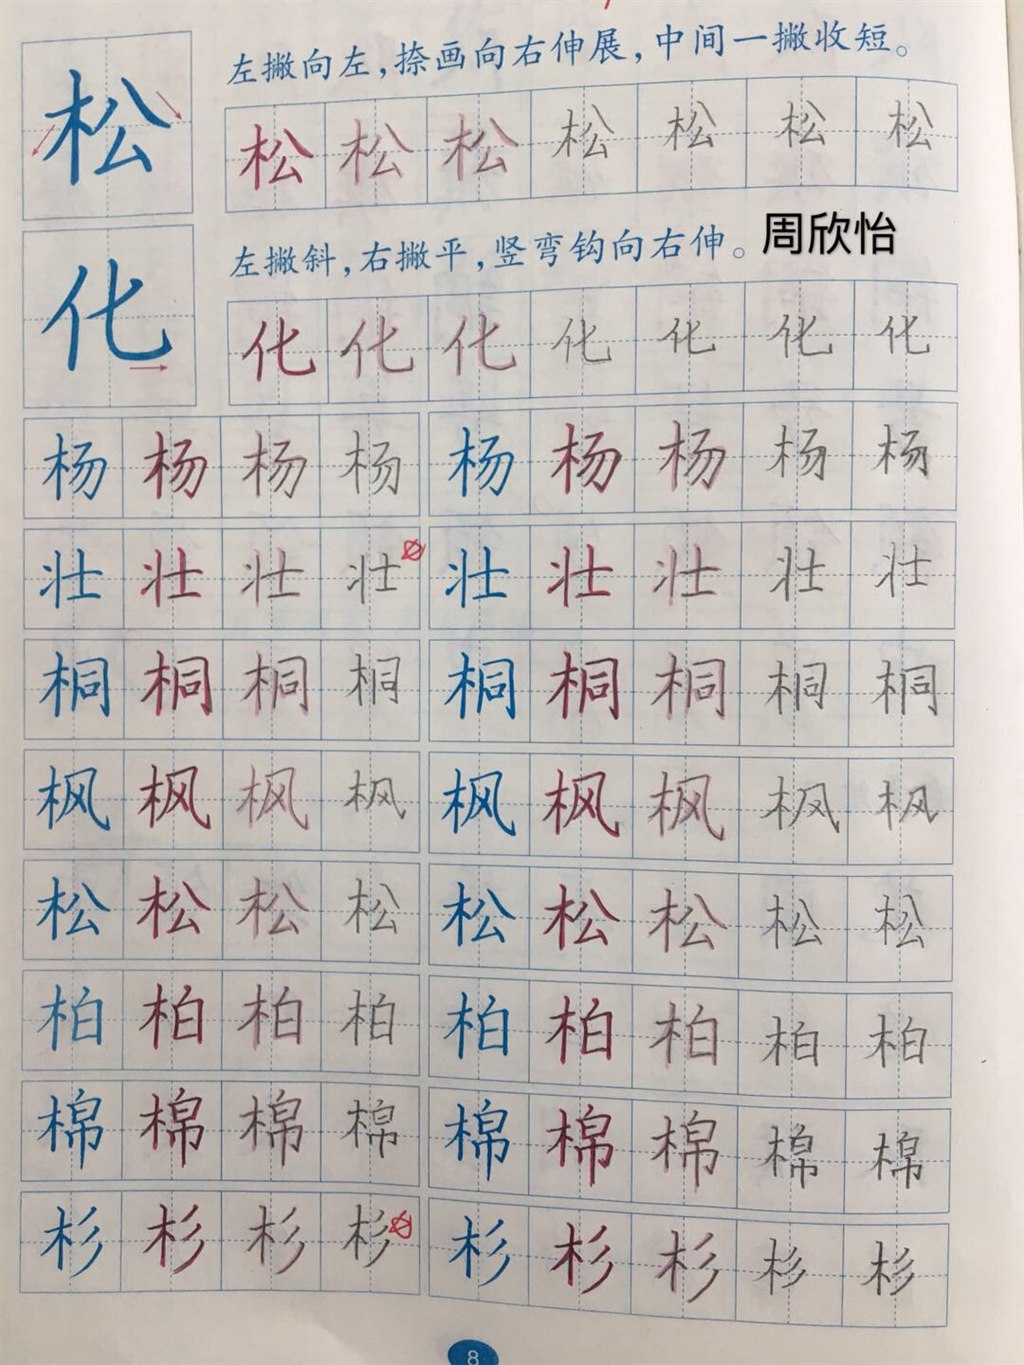 松
左撇向左，捺画向右伸展，中间一撇收短。
松松松松松松松
化
左撇斜，右撇平，竖弯钩向右伸。周欣怡
化化化化化化化
杨杨杨杨杨杨杨杨杨
壮壮壮壮壮壮壮壮壮
桐桐桐桐桐桐桐桐桐
枫枫枫枫枫枫枫枫枫
松松松松松松松松松
柏柏柏柏柏柏柏柏柏
棉棉棉棉棉棉棉棉棉
杉杉杉杉杉杉杉杉杉
8